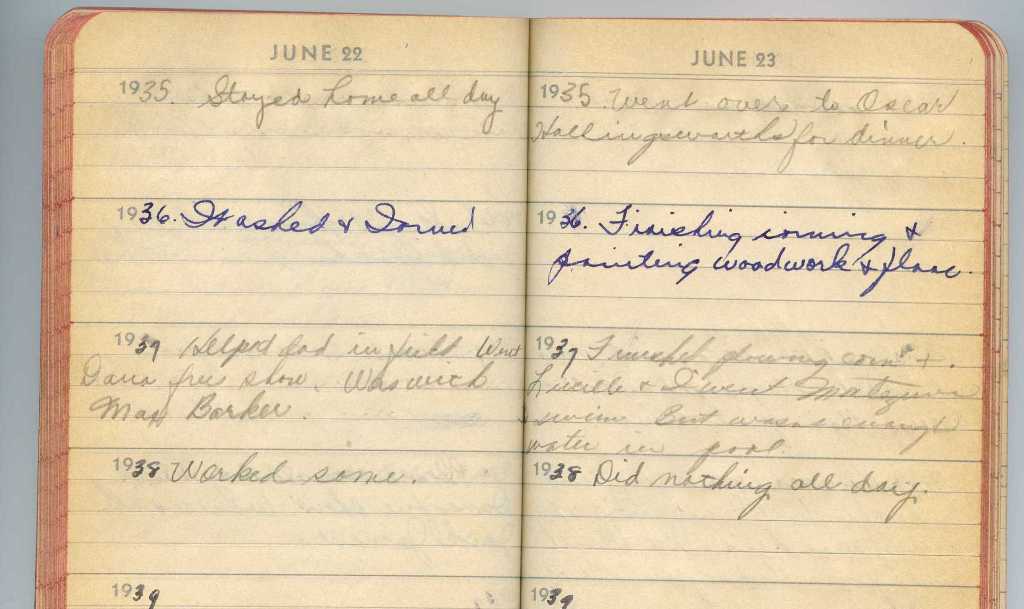 JUNE 22
1935. Stayed home all day
1936. Washed & Ironed
1937 Helped dad in field Went
Dana free show. Was with
Max Barker.
1938 Worked some.
1939
JUNE 23
1935. Went over to Oscar
Hollingsworths for dinner.
1936. Finishing ironing &
painting woodwork & floor.
1937 Finished plowing corn &
Lucille & I went
swim But wasn enough
water in pool.
1938 Did nothing all day.
1939